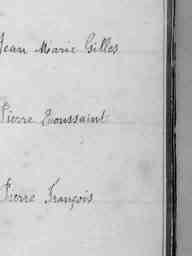 Jean Marie Gilles
Pierre Toussaint
Pierre François